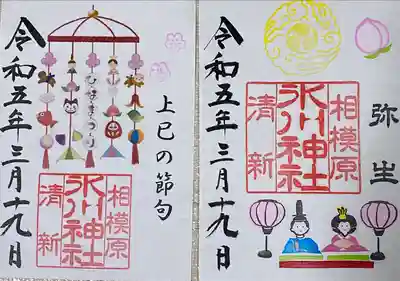 上巳の節句
ひなまつり
相模原
氷川神社
清新
令和五年三月十九日
弥生
相模原
氷川神社
清新
令和五年三月十九日